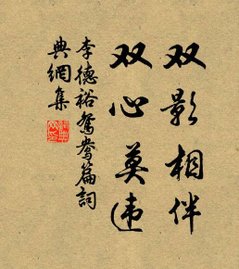 双影相伴
双心莫违
李德裕鸳鸯篇詞
典網集